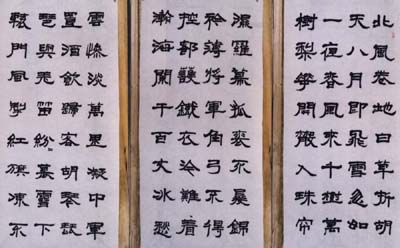 北風卷地白草折胡
天八月即飛雪忽如
一夜春風來千樹萬
樹梨華開散入珠帘
濕羅幕狐裘不暖錦
衾薄將軍角弓不得
控都護鐵衣冷難着
瀚海闌干百丈冰愁
雲慘淡萬里凝中軍
置酒飲歸客胡琴琵
琶與羌笛紛〻暮雪下
轅門風掣紅旗凍不